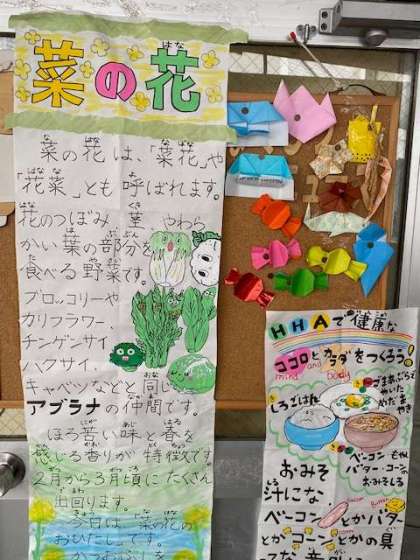 菜の花
菜の花は、「菜花」や
「花菜」とも呼ばれます。
花のつぼみ 茎、やわら
かい葉の部分を
食べる野菜です。
ブロッコリーや
カリフラワー
チンゲンサイ、
ハクサイ、
キャベツなどと同じ
アブラナの仲間です。
ほろ苦い味と春を
感じる香りが特徴です
2月から3月頃にたくさん
出回ります。
今日は菜の花の
おひたしです。
HHAで健康な
ココロとカラダをつくろう!
mind and body
しろごはん
おみそ
汁にな
ベーコンとかバター
とかコーンとかの具